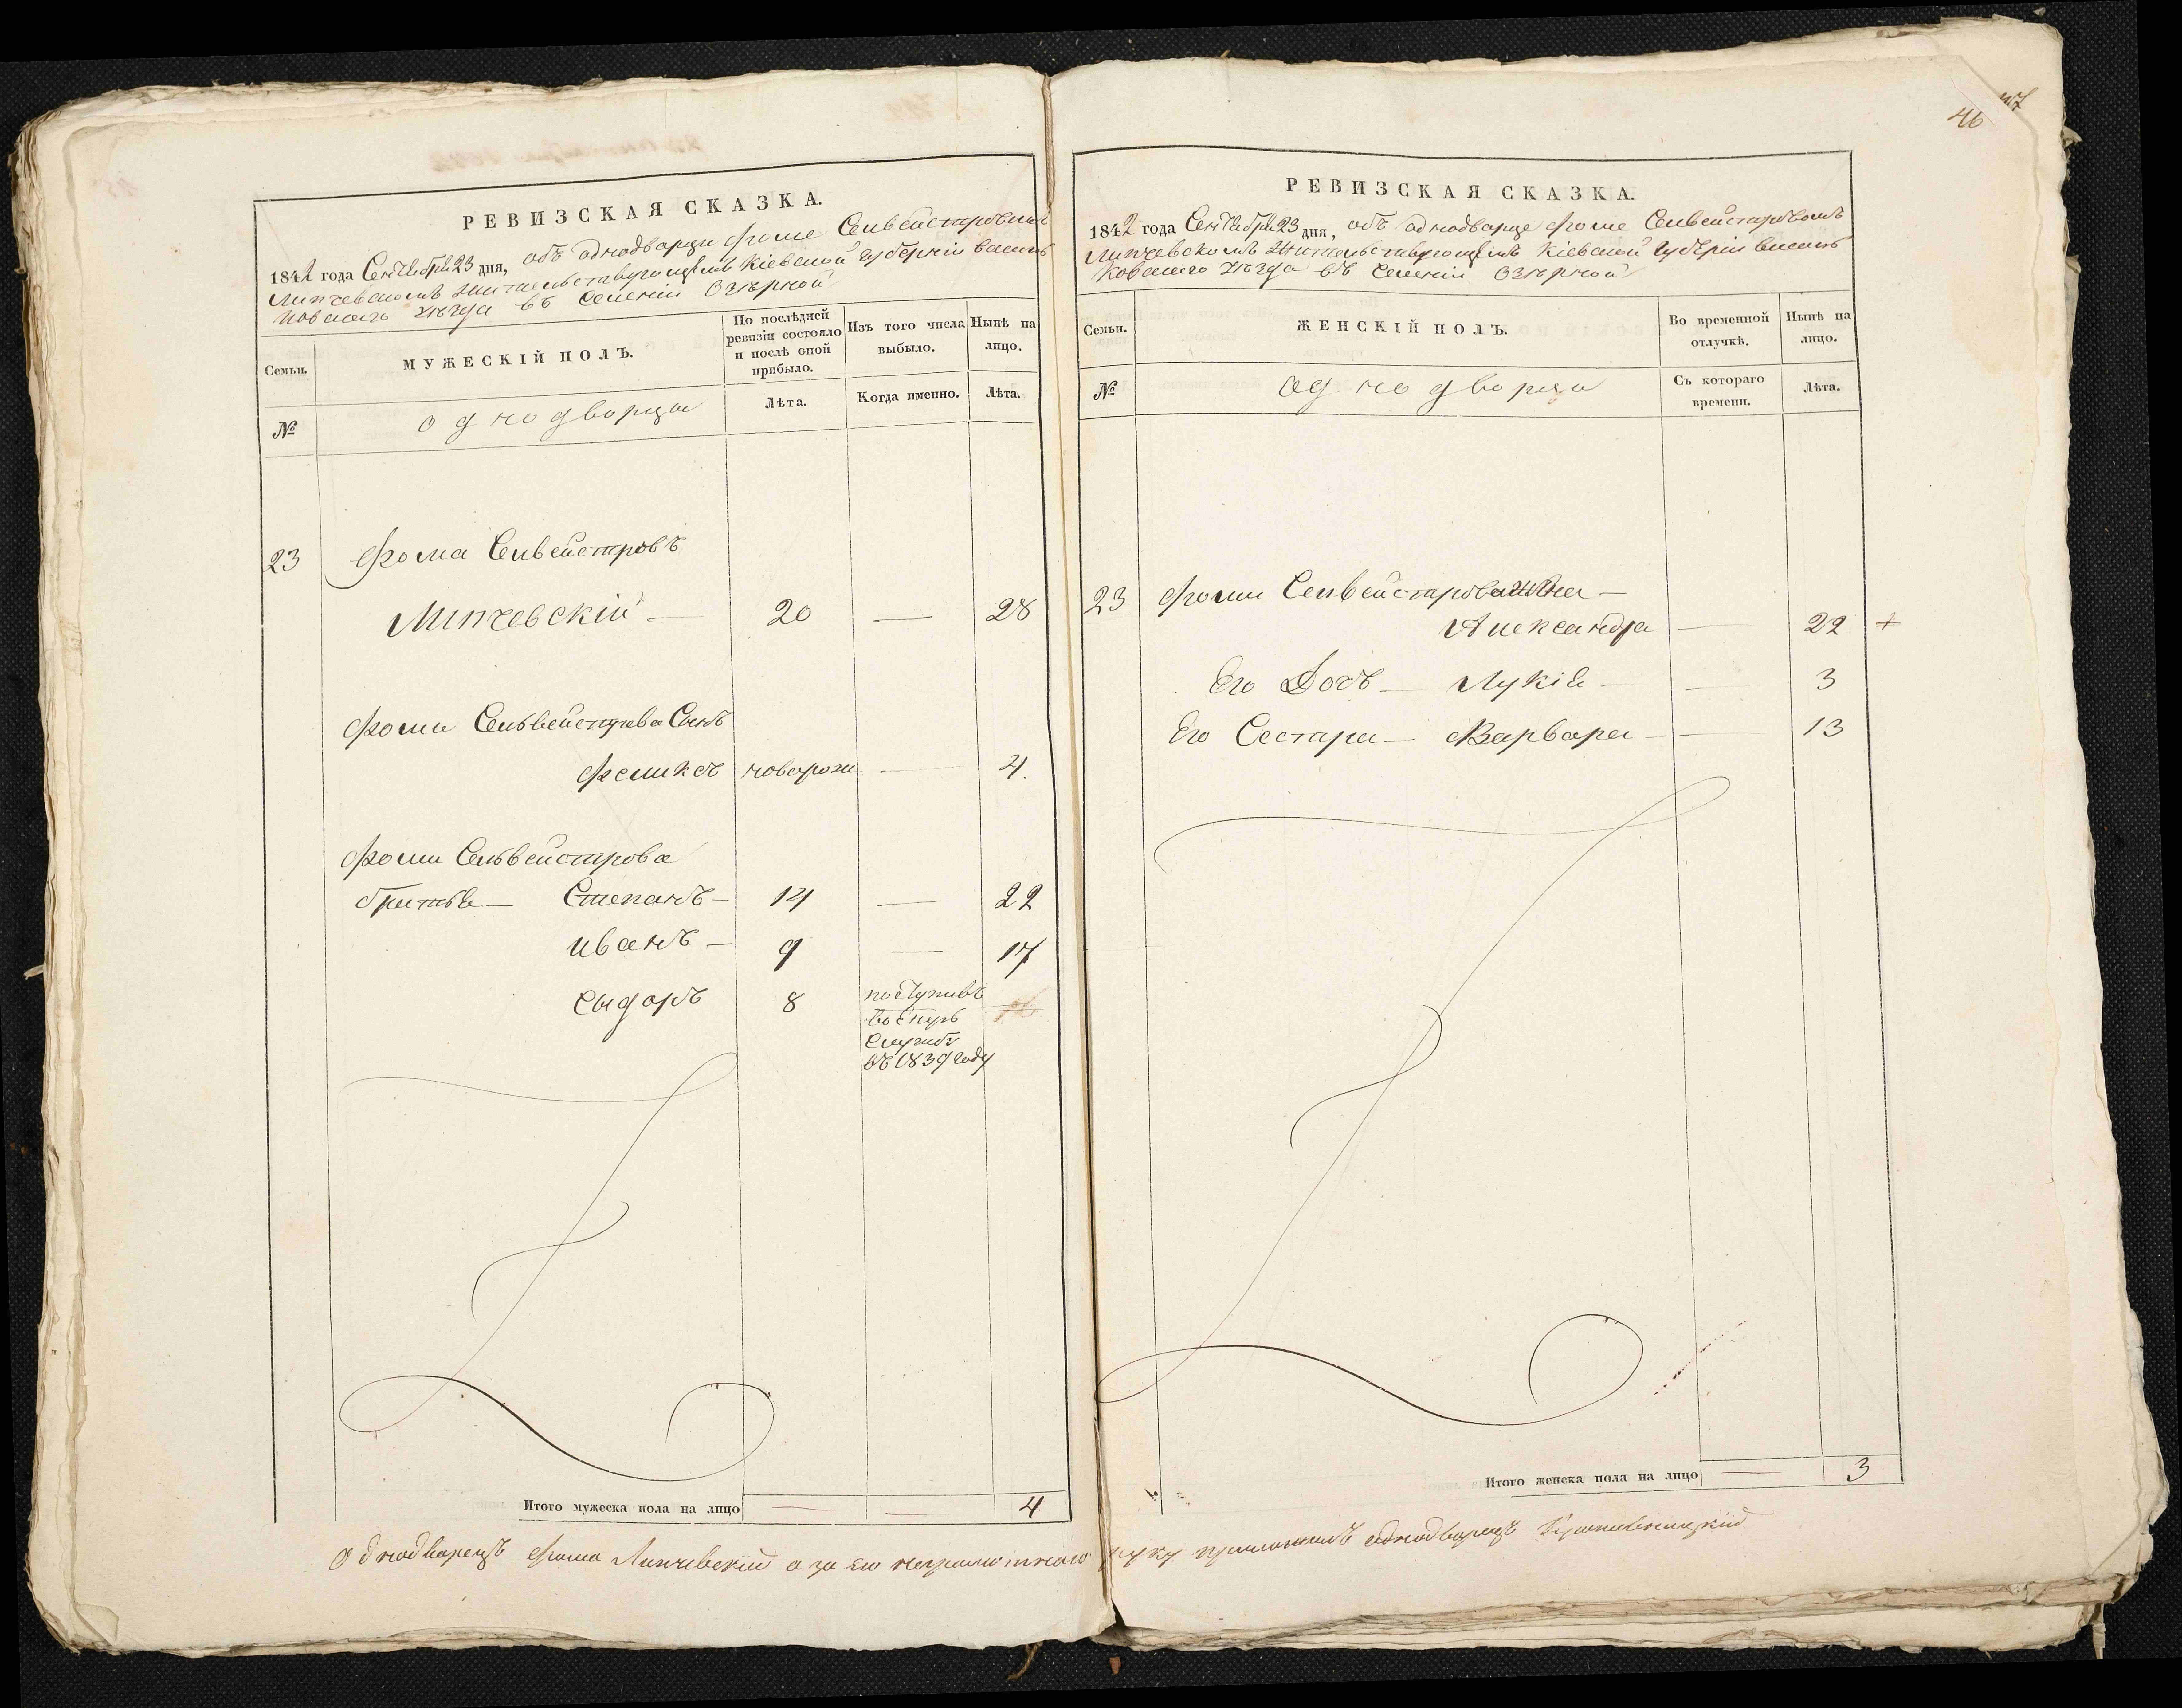 РЕВИЗСКАЯ СКАЗКА.
1842 года Сентября 23 дня, объ однодворци Фоме Сильвейстровомъ
Липчевскомъ жительствующемъ Кіевской губерніи Василь
ковскаго уезда въ селеніи Озѣрной
Семьи.
МУЖЕСКІЙ ПОЛЪ.
По послѣдней ревизіи состояло и послѣ оной прибыло.
Изъ того числа выбыло.
Нынѣ на лицо.
№
однодворци
Лѣта.
Когда именно.
Лѣта.
23 Фома Силвейстровъ
Липчевскій — 20 — 28
Фомы Сильвейстрова Сынъ
Феликсъ новорож — 4.
Фомы Сильвейстрова
братья — Степанъ — 14 — 22
Иванъ — 9 — 17
Сыдоръ 8 поступивъ
службу
въ 1839 году
Итого мужеска пола на лицо — — 4
46
47
РЕВИЗСКАЯ СКАЗКА.
1842 года Сентября 23 дня, объ однодворце Фоме Силвейстровомъ
Липчевскомъ жительствующемъ Кіевской губеріи Василь
ковскаго уезда въ селеніи Озѣрной
Семьи.
ЖЕНСКІЙ ПОЛЪ.
Во временной отлучкѣ.
Нынѣ на лицо.
№
однодворци
Съ котораго времени.
Лѣта.
23 Фомы Силвейстрова жена —
Александра — 22 +
Его Дочь — Лукія — — 3
Его Сестра — Варвара — — 13
Итого женска пола на лицо — 3
Однодворецъ Фома Липчевскій а за его неграмотнаго руку приложилъ однодворецъ Кропивницкій